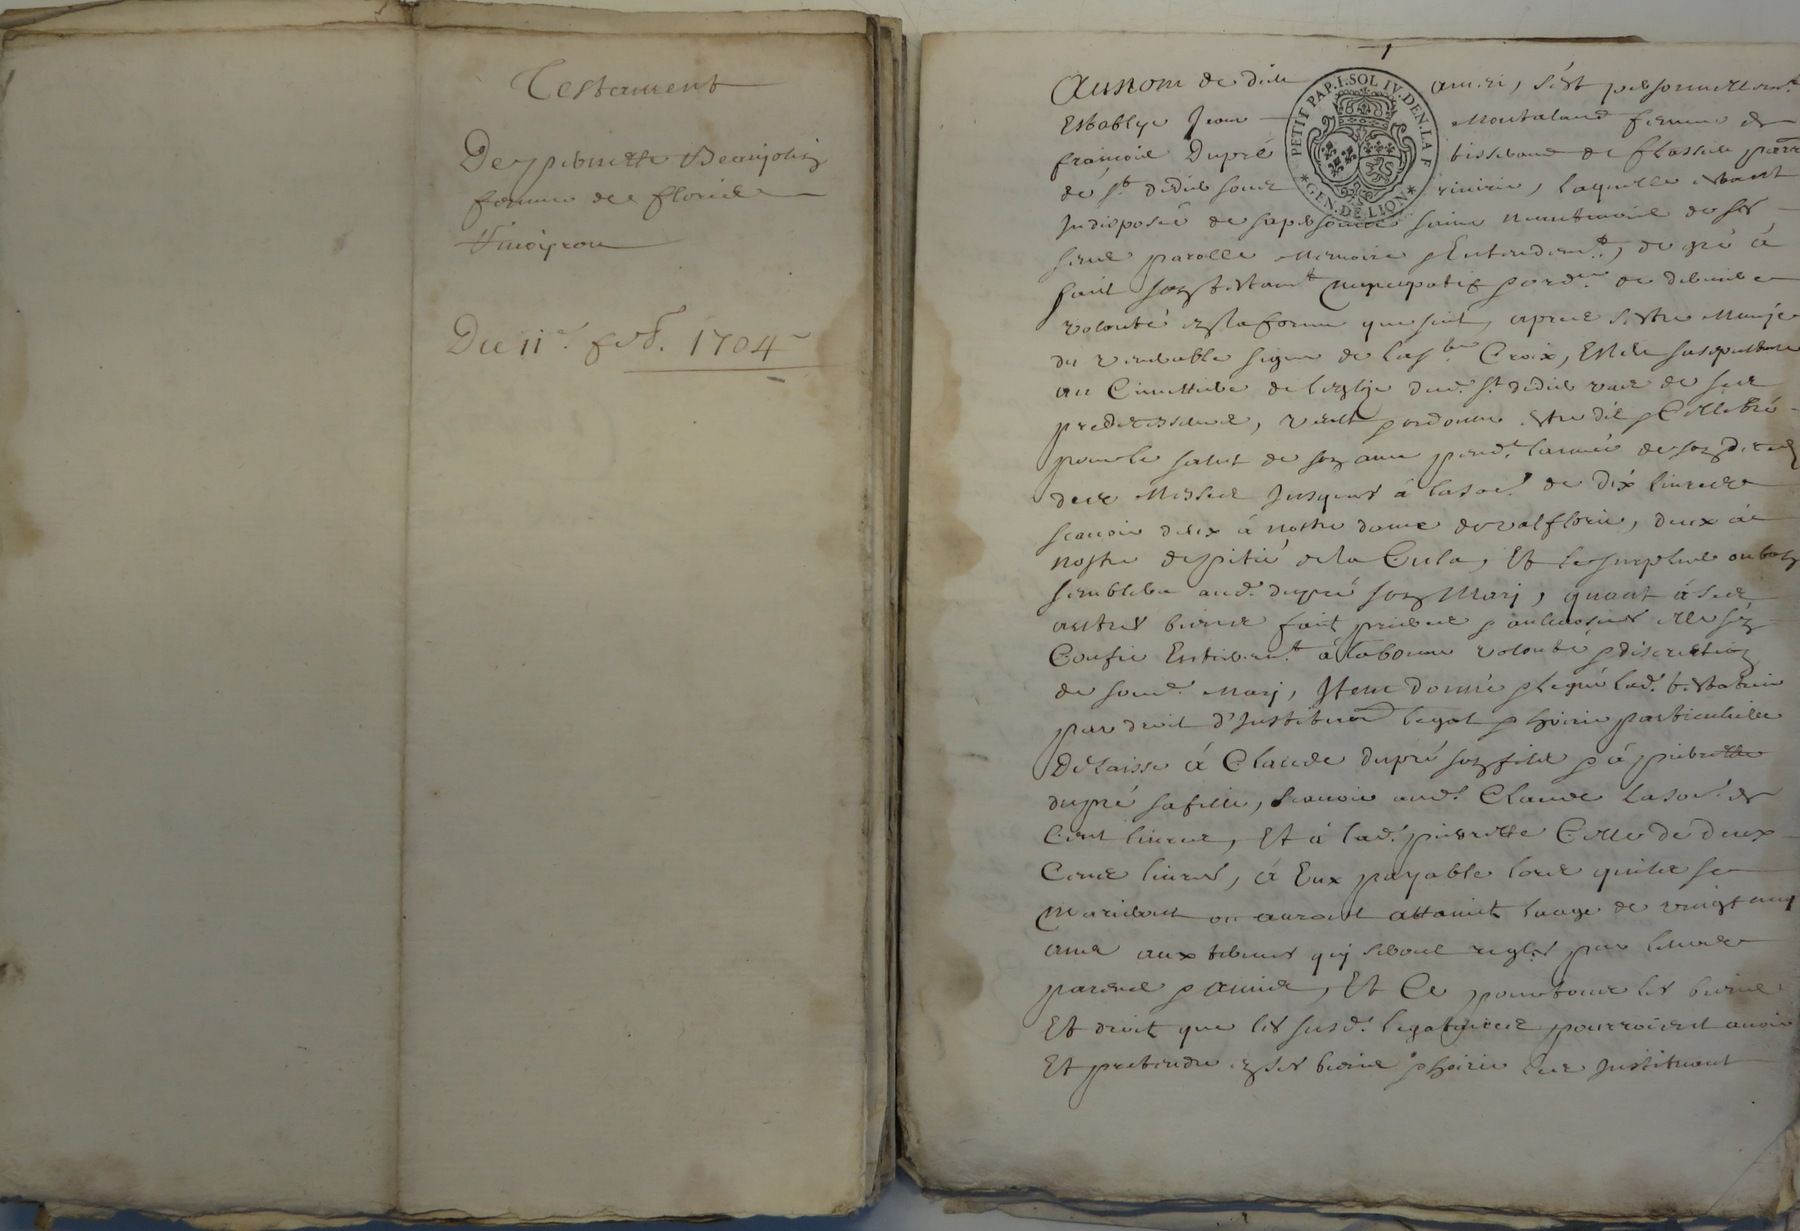 Testament
De pierrette Beaujolin
femme de florie
Vincipron
Du 11e feb. 1704
1
Au nom de dieu amen, s'est personnellemt
Establye Jeanne Montaland femme de
francois Dupré tisserand de flassieu parr
de st didier soubz riverie, laquelle estant
Indisposée de sa personne saine neantmoins de ses
sens parolle memoire & Entendemt, de gré à
fait son testamt nuncupatif & ordce de derniere
volonté en la forme que suit, apres s'estre munje
du venerable signe de la ste Croix, Eslire sa sepulture
au Cimettiere de leglise dud. st didier vas de ses
predecesseurs, veult & ordonne estre dit & Cellebré
pour le salut de son ame pend.t l'année de son deced
des Messes Jusques à la so.e de dix livres
scavoir deux à nostre dame de valflorie, deux à
nostre de pitié de la Cula, Et le surplus ou bon
semblera aud. dupré son Marj, quant à ses
autres biens faits prieres & aulmosnes elle s'en
Confie Entieremt à la bonne volonté & discretion
de sond. marj, Item donne & legue lad. testatrice
par droit d'Institution legat & hoirie particuliere
Delaisse à Claude dupré son fils & à pierrette
dupré sa fille, scavoir aud. Claude la so.e de
Cent livres, Et à lad. pierrette Celle de deux
Cens livres, à Eux payable lors quils se
mariront ou auront attaint laage de vingt cinq
ans aux termes quj seront reglés par leurs
parens & amis, Et Ce pour tous les biens
Et droit que les susd. legataires pourroient avoir
Et pretendre en ses biens & hoirie les Instituant
PETIT PAP. I. SOL IV. DEN. LA F
GEN. DE LION